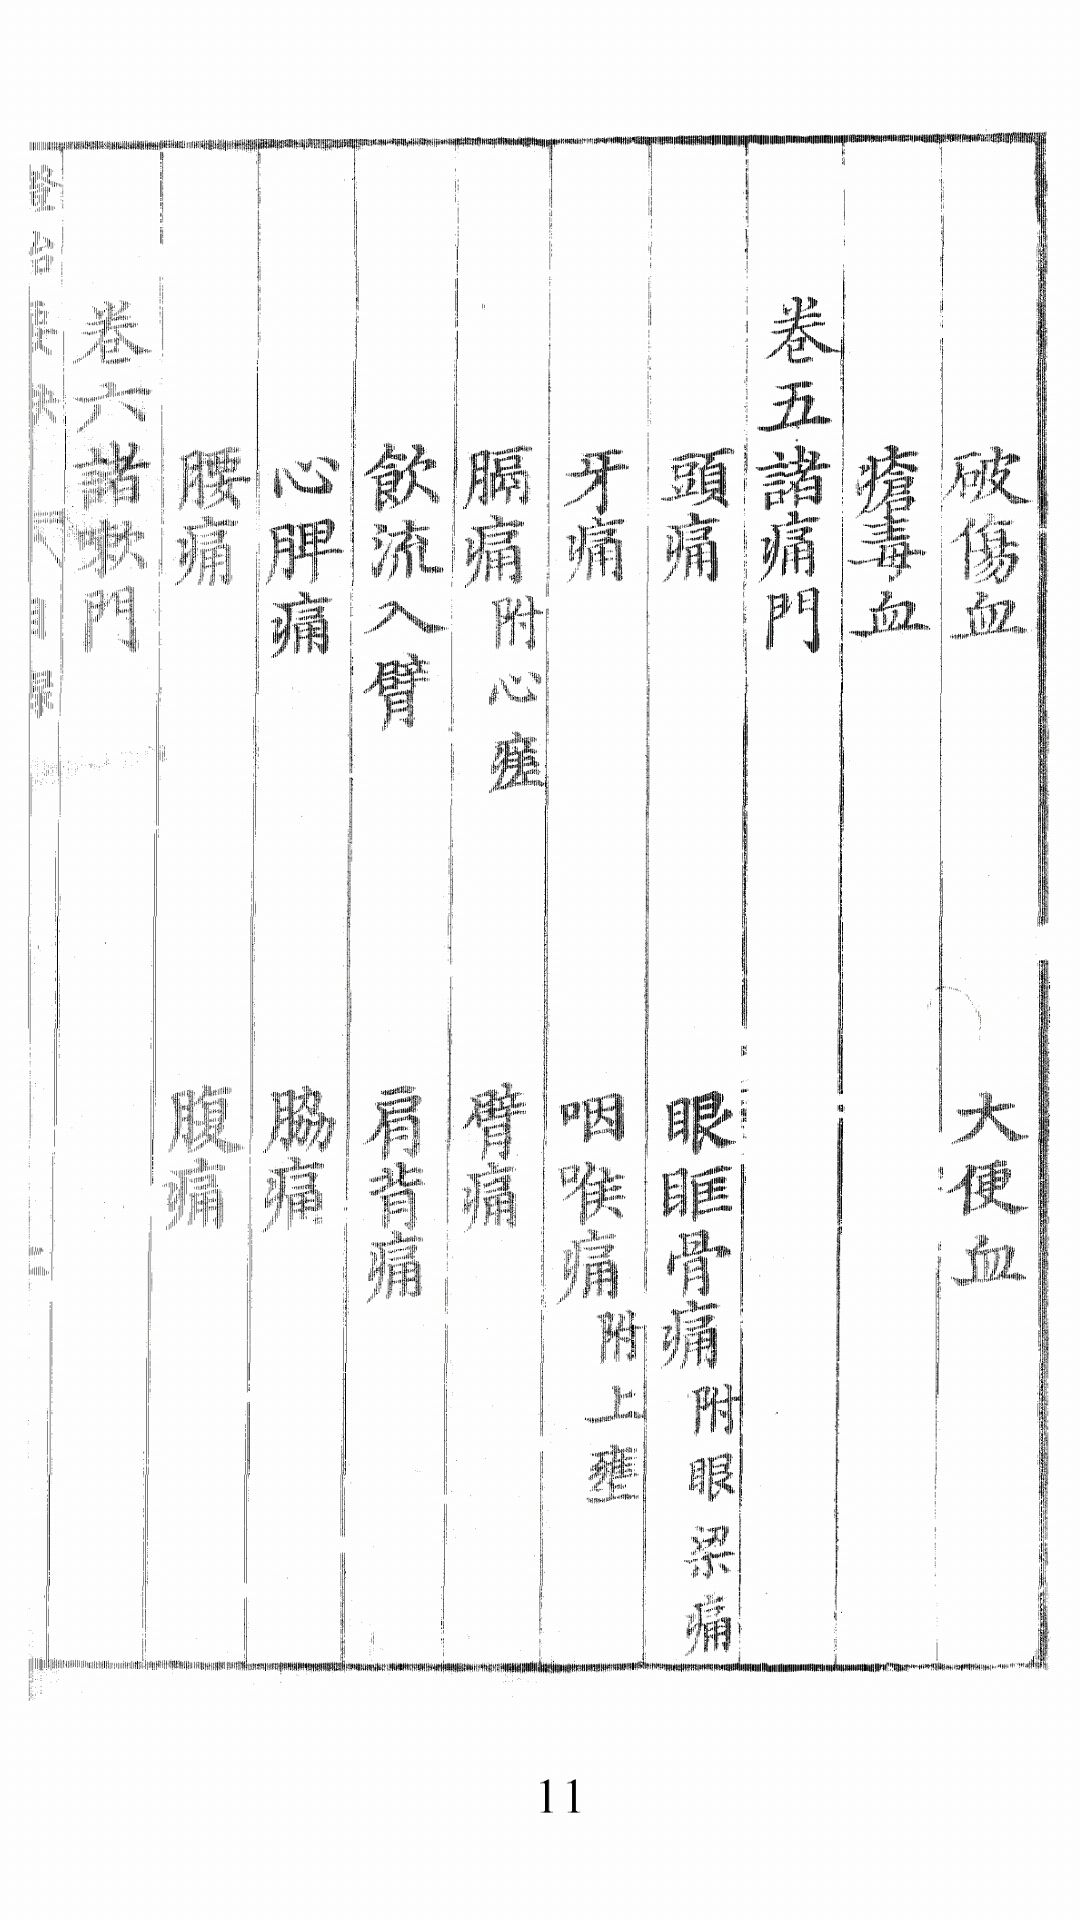 破傷血　大便血
瘡毒血
卷五諸痛門
頭痛　眼眶骨痛附眼梁痛
牙痛　咽喉痛附上壅
膈痛附心痓　臂痛
飲流入臂　肩背痛
心脾痛　脇痛
腰痛　腹痛
卷六諸嗽門
證治要訣 目録 二
11